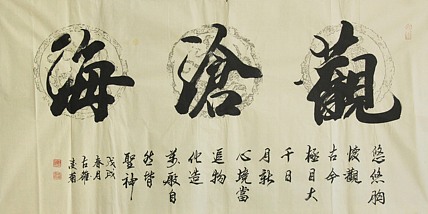 觀滄海
悠悠胸
懷觀
古今
極目大
千日
月新
心境當
追物
化造
萬般自
然皆
聖神
戊戌
春月